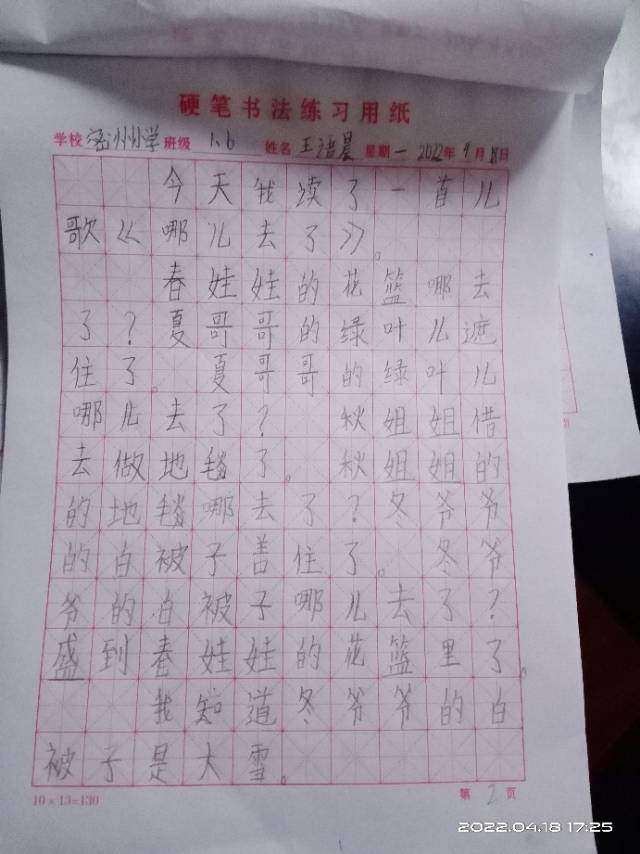 硬笔书法练习用纸
学校 密州小学 班级 1.6 姓名 王浩晨 星期一 2022年4月18日
今天我读了一首儿
歌《哪儿去了》。
春娃娃的花篮哪去
了?夏哥哥的绿叶儿遮
住了。夏哥哥的绿叶儿
哪儿去了?秋姐姐借
去做地毯了。秋姐姐的
的地毯哪去了?冬爷爷
的白被子盖住了。冬爷
爷的白被子哪儿去了?
盛到春娃娃的花篮里了。
我知道冬爷爷的白
被子是大雪。
10×13=130
第2页
2022.04.18 17:25